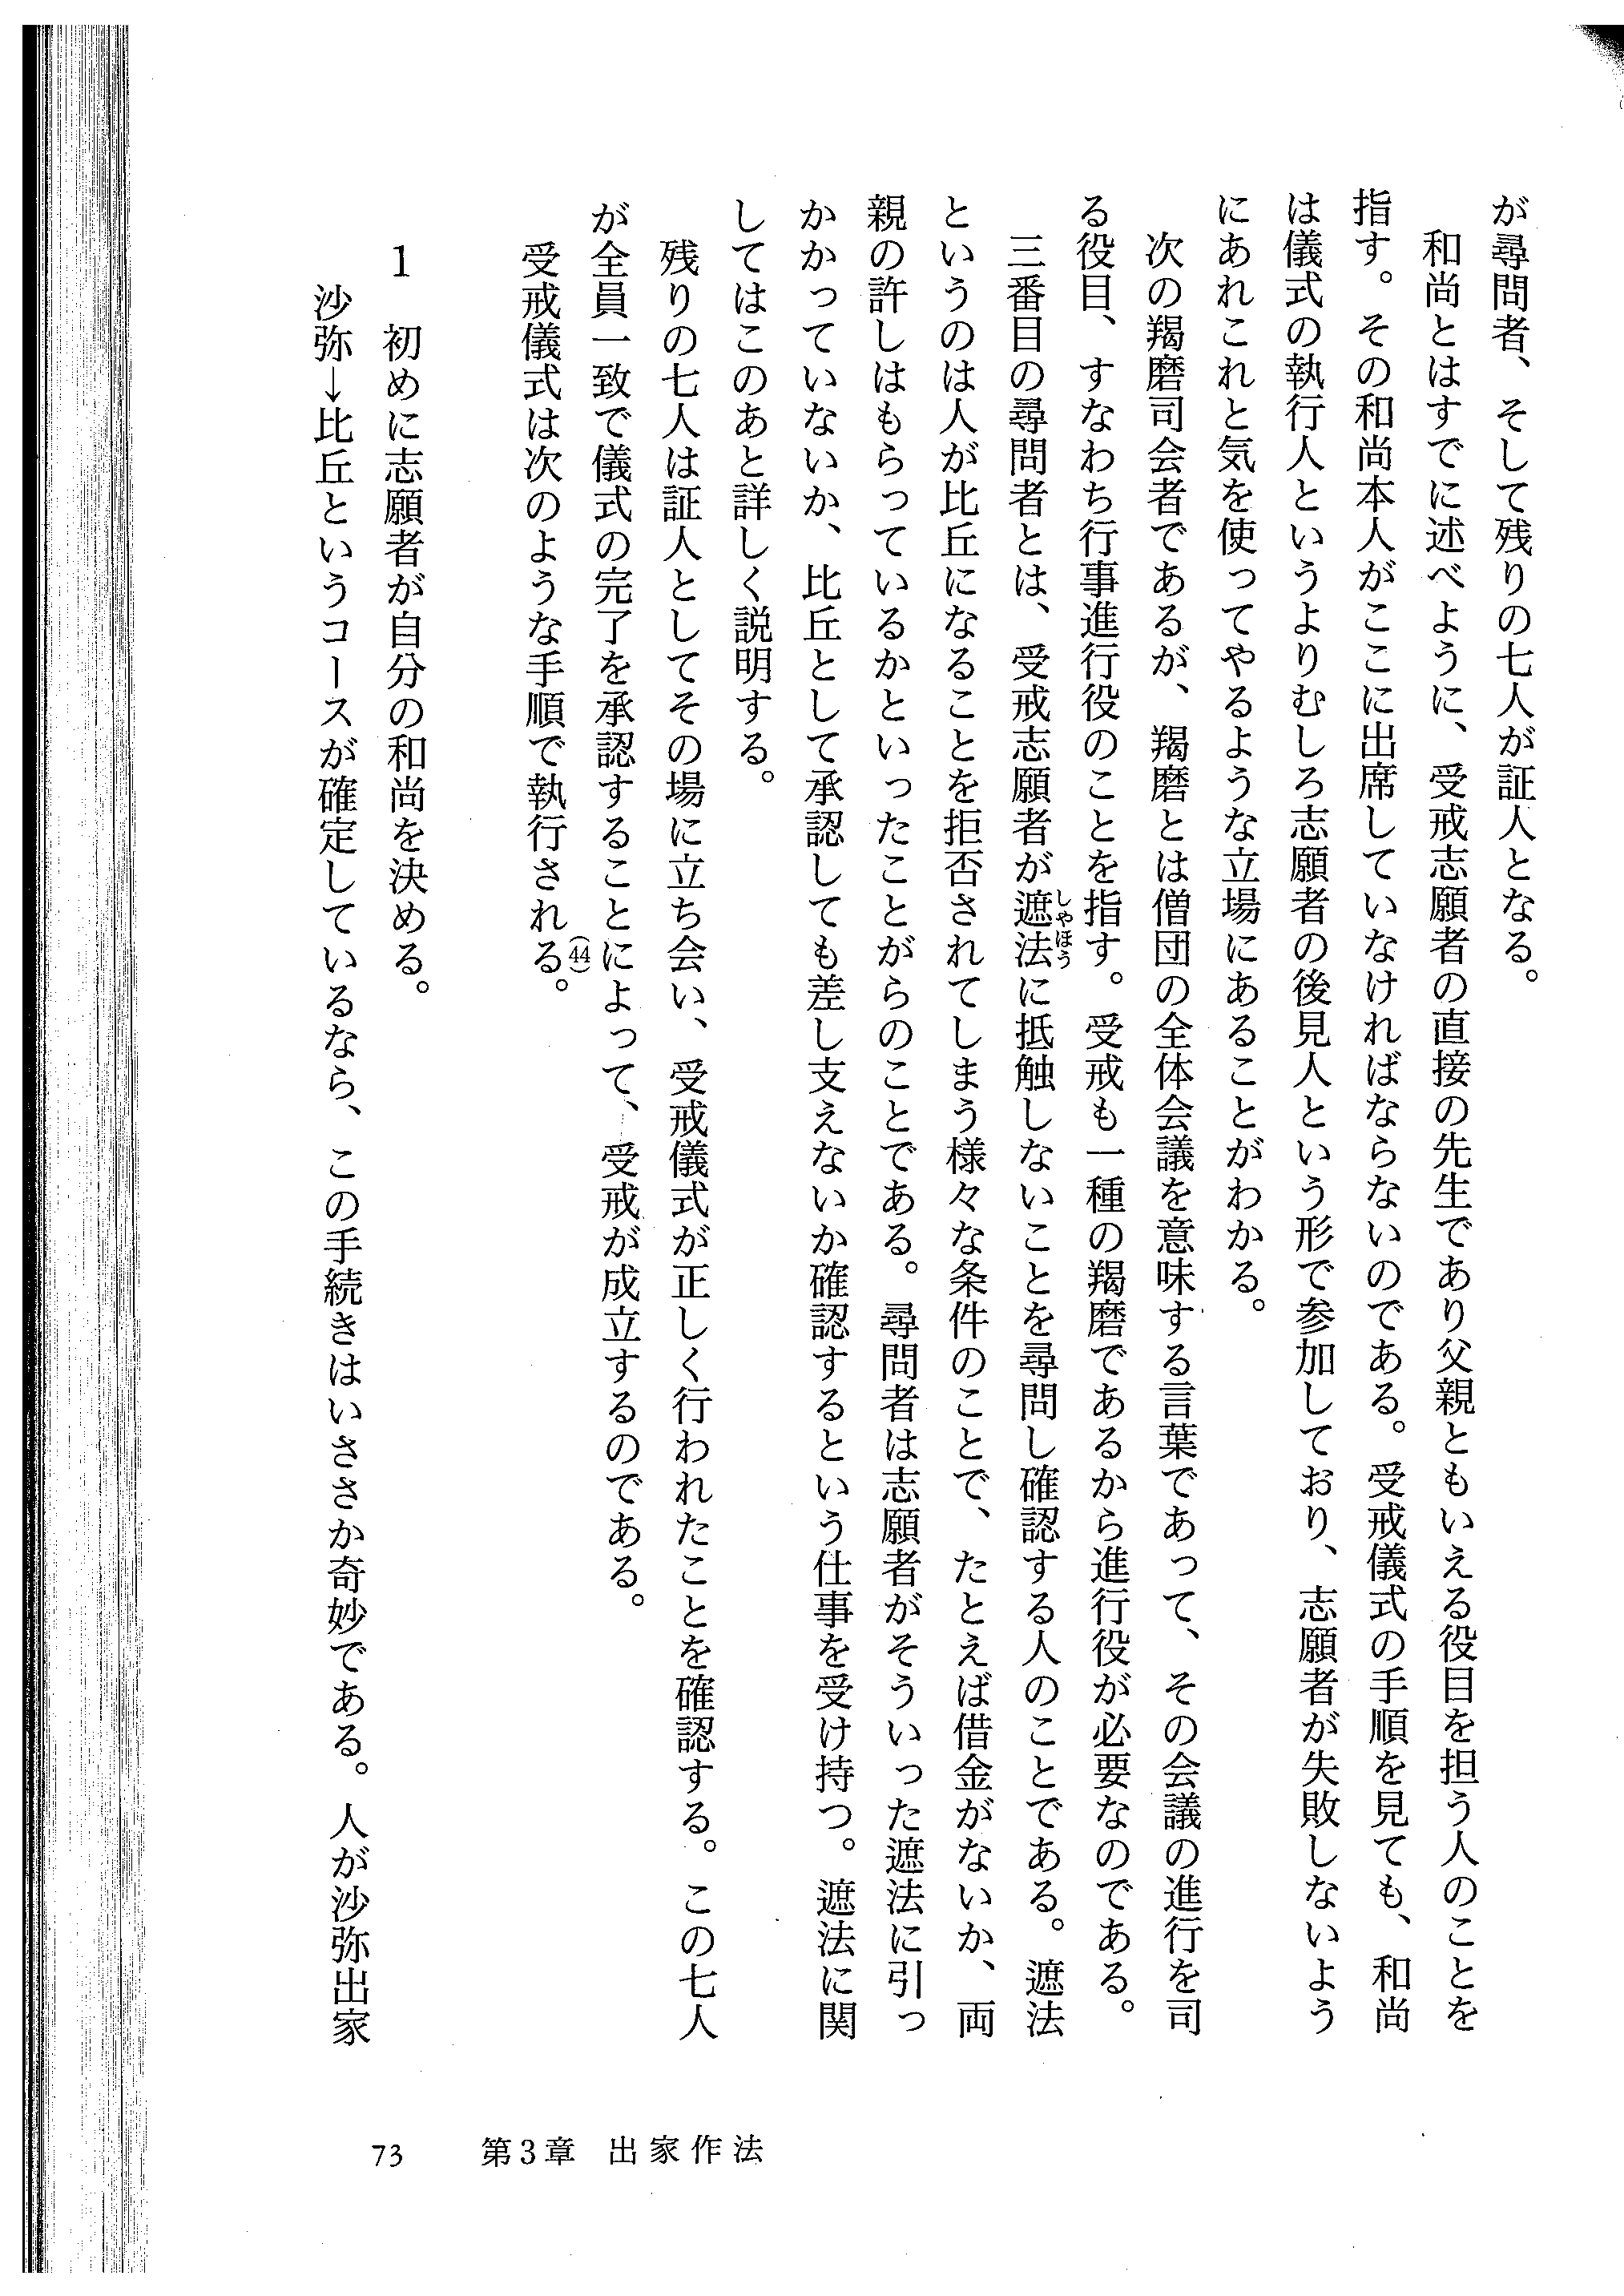 が尋問者、そして残りの七人が証人となる。
和尚とはすでに述べように、受戒志願者の直接の先生であり父親ともいえる役目を担う人のことを
指す。その和尚本人がここに出席していなければならないのである。受戒儀式の手順を見ても、和尚
は儀式の執行人というよりむしろ志願者の後見人という形で参加しており、志願者が失敗しないよう
にあれこれと気を使ってやるような立場にあることがわかる。
次の羯磨司会者であるが、羯磨とは僧団の全体会議を意味する言葉であって、その会議の進行を司
る役目、すなわち行事進行役のことを指す。受戒も一種の羯磨であるから進行役が必要なのである。
三番目の尋問者とは、受戒志願者が遮法に抵触しないことを尋問し確認する人のことである。遮法
しゃほう
というのは人が比丘になることを拒否されてしまう様々な条件のことで、たとえば借金がないか、両
親の許しはもらっているかといったことがらのことである。尋問者は志願者がそういった遮法に引っ
かかっていないか、比丘として承認しても差し支えないか確認するという仕事を受け持つ。遮法に関
してはこのあと詳しく説明する。
残りの七人は証人としてその場に立ち会い、受戒儀式が正しく行われたことを確認する。この七人
が全員一致で儀式の完了を承認することによって、受戒が成立するのである。
受戒儀式は次のような手順で執行される(44)。
1 初めに志願者が自分の和尚を決める。
沙弥→比丘というコースが確定しているなら、この手続きはいささか奇妙である。人が沙弥出家
73 第3章 出家作法